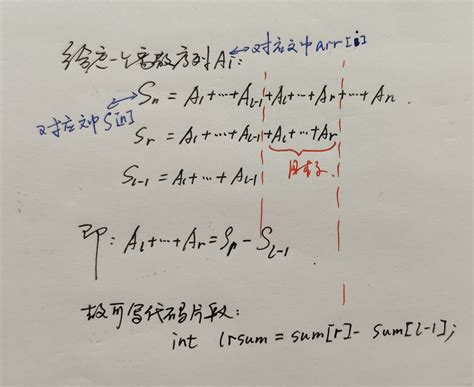 给定一个离散序列Ai: ↔对应文中arr[i]
对应文中S[n] ↔ Sn = A1+…+Al-1+Al+…+Ar+…+An
Sr = A1+…+Al-1+Al+…+Ar
Sl-1 = A1+…+Al-1 目标
即: Al+…+Ar=Sr-Sl-1
故可写代码片段:
int lrsum = sum[r]- sum[l-1];